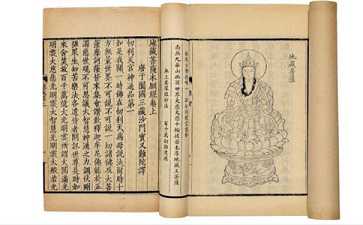 地藏菩薩
南無九華山幽冥世界大慈大悲十輪拔苦本尊地藏王菩薩
地藏菩薩本願經卷上
唐于闐國三藏沙門實叉難陀譯
忉利天宮神通品第一
如是我聞一時佛在忉利天為母說法爾時十
方無量世界不可說不可說一切諸佛及大菩
薩摩訶薩皆來集會讚歎釋迦牟尼佛能於五
濁惡世現不可思議大智慧神通之力調伏剛
彊眾生知苦樂法各遣侍者問訊世尊是時如
來含笑放百千萬億大光明雲所謂大圓滿光
明雲大慈悲光明雲大智慧光明雲大般若光